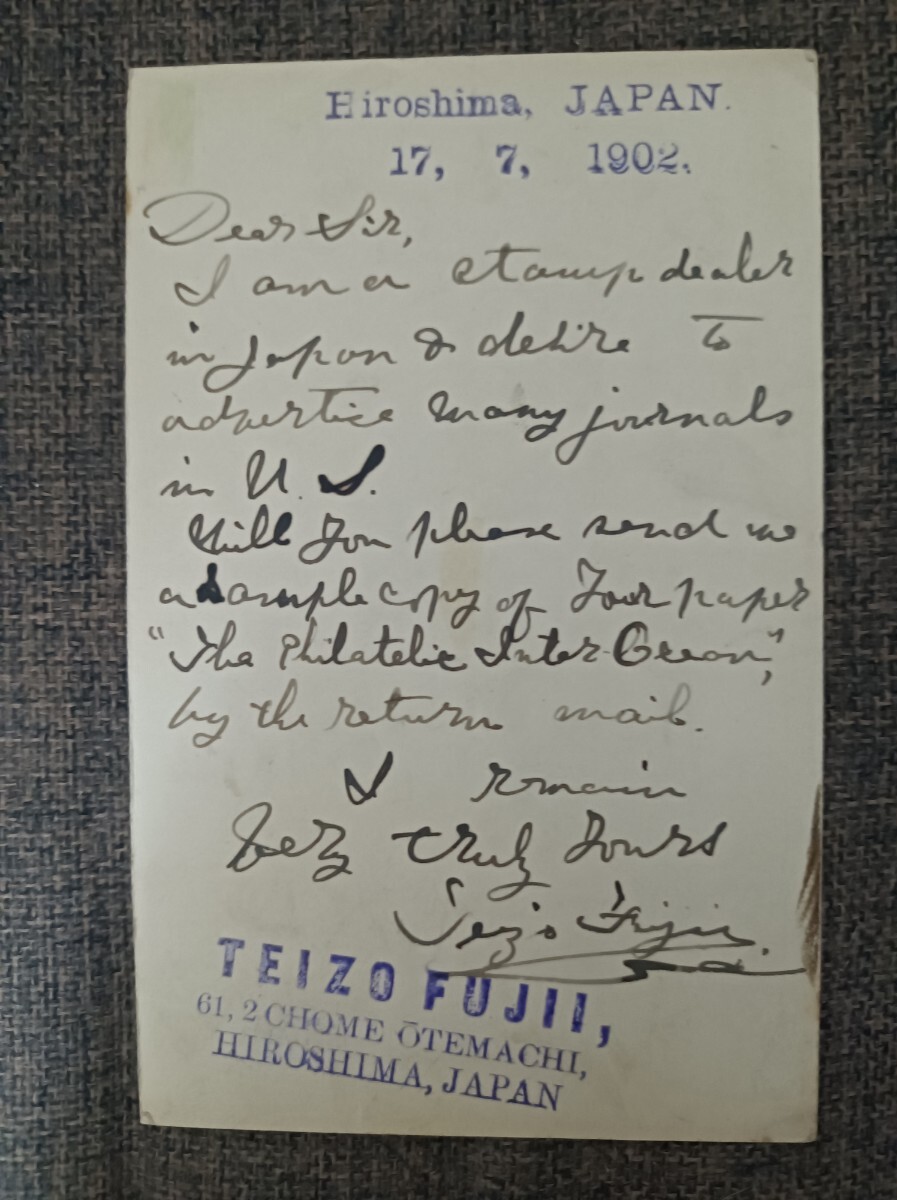 Hiroshima, JAPAN.
17, 7, 1902.
Dear Sir,
I am a stamp dealer
in Japan & desire to
advertise many journals
in U. S.
Will You please send me
a sample copy of Your paper
"The Philatelic Inter-Ocean",
by the return mail.
I remain
Very truly Yours
Teizo Fujii.
TEIZO FUJII,
61, 2 CHOME ŌTEMACHI,
HIROSHIMA, JAPAN